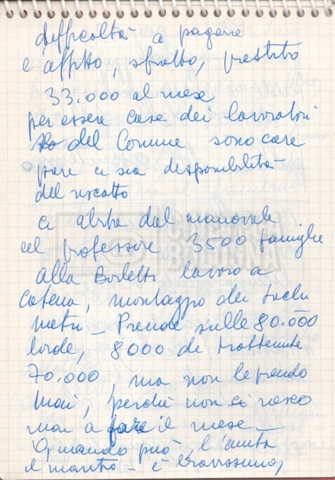 difficoltà a pagare
e affitto, sfratto, prestito
33.000 al mese
per essere case dei lavoratori
del Comune sono care
pare ci sia disponibilità
del riscatto
ci abita dal manovale
al professore 3500 famiglie
alla Borletti lavoro a
catena, montaggio dei tachi
metri - Prende sulle 80.000
lorde, 8000 di trattenute
70.000, ma non le prendo
mai, perché non ci riesco
mai a fare il mese -
Quando può, l'aiuta
il marito - è bravissimo,